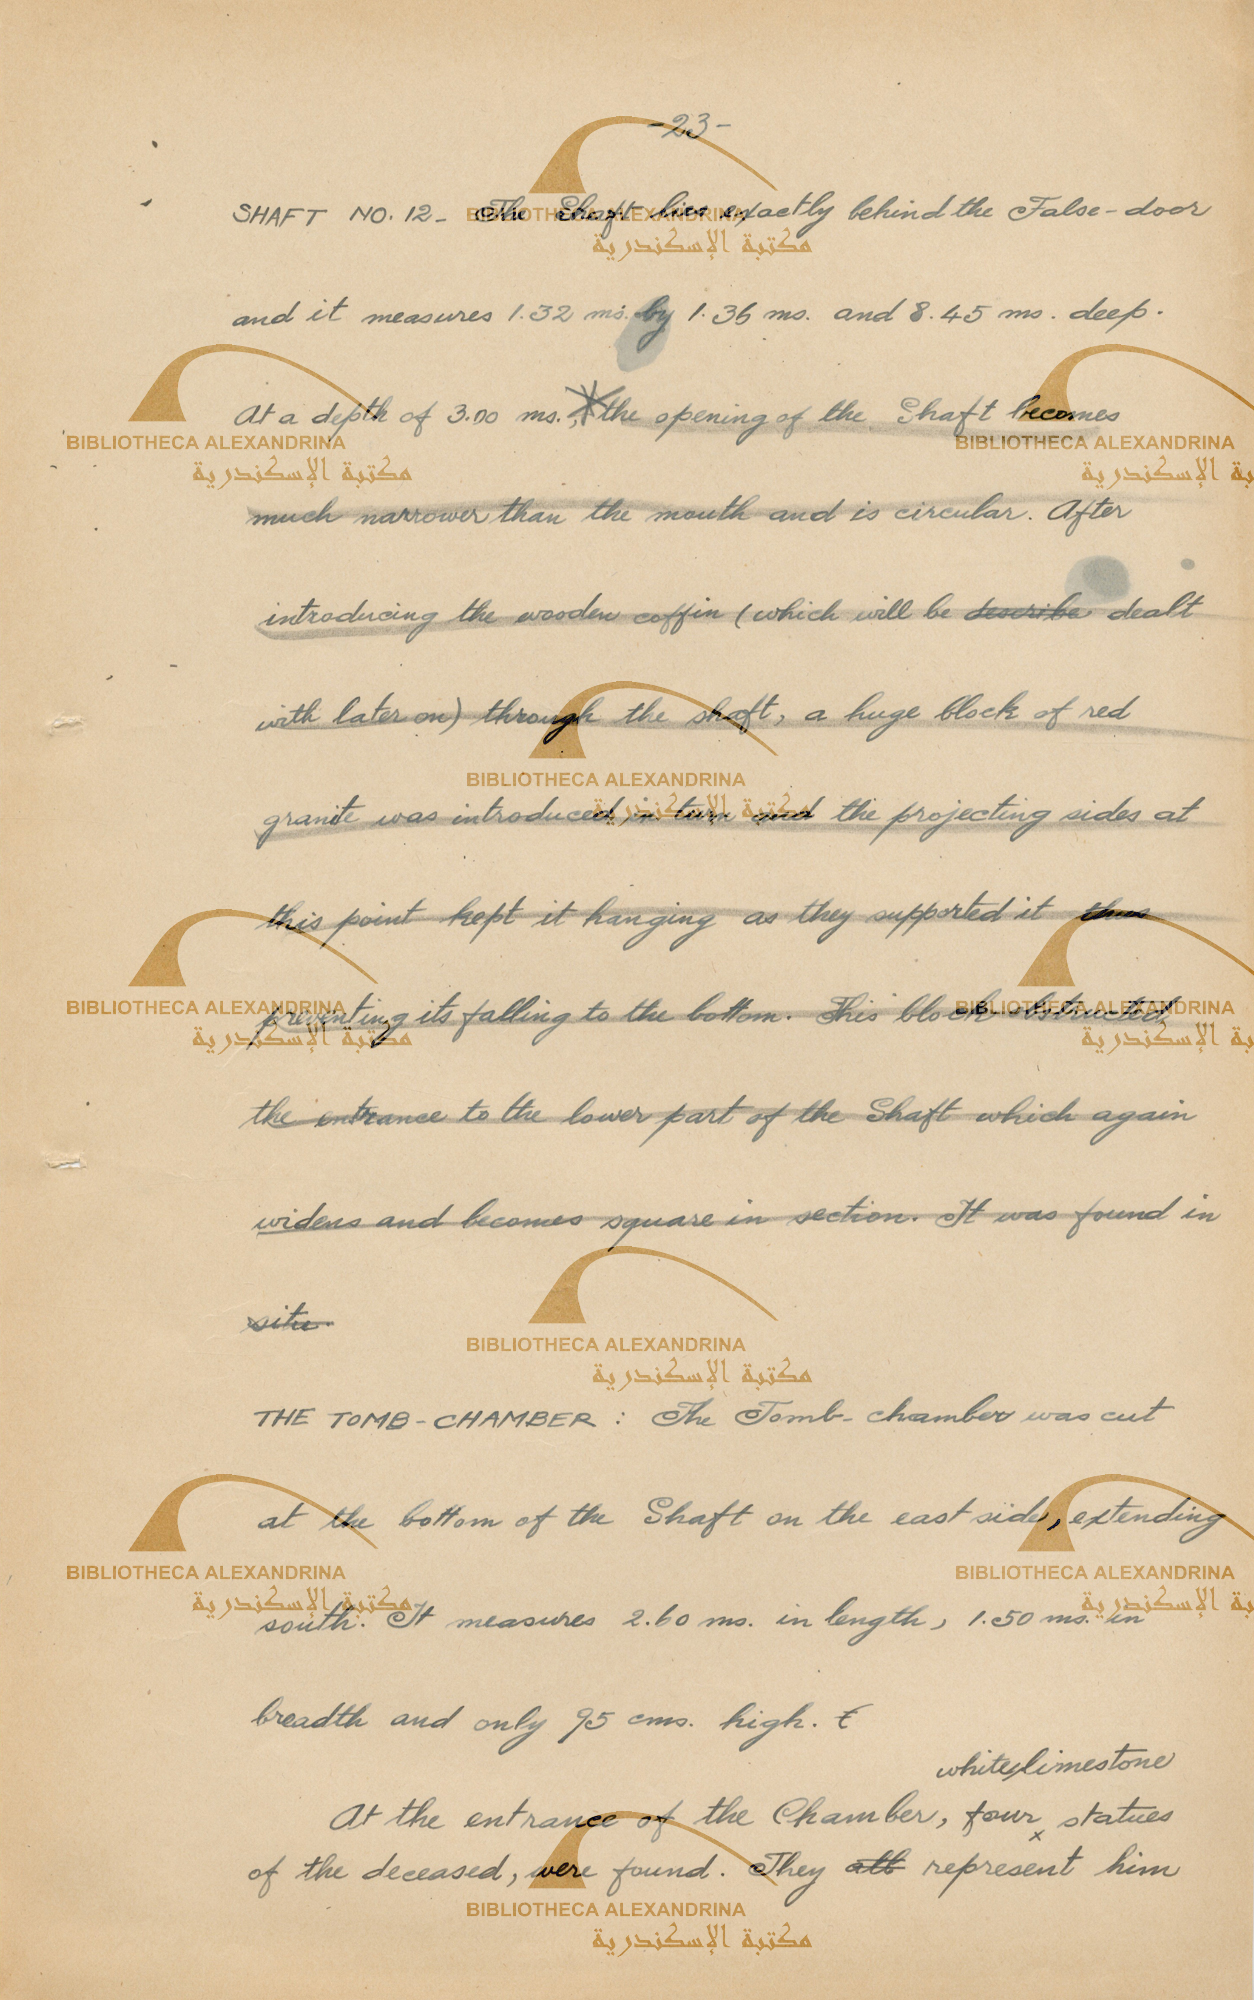 -23-
SHAFT NO. 12_ The Shaft lies exactly behind the False-door
and it measures 1.32 ms. by 1.36 ms. and 8.45 ms. deep.
At a depth of 3.00 ms., the opening of the Shaft becomes
much narrower than the mouth and is circular. After
introducing the wooden coffin (which will be describe dealt
with later on) through the shaft, a huge block of red
granite was introduced in turn and the projecting sides at
this point kept it hanging as they supported it thus
preventing its falling to the bottom. This block obstructed
the entrance to the lower part of the Shaft which again
widens and becomes square in section. It was found in
situ.
THE TOMB-CHAMBER : The Tomb-chamber was cut
at the bottom of the Shaft on the east side, extending
south. It measures 2.60 ms. in length, 1.50 ms. in
breadth and only 95 cms. high. t
white limestone
At the entrance of the Chamber, four x statues
of the deceased, were found. They all represent him
BIBLIOTHECA ALEXANDRINA
مكتبة الإسكندرية
BIBLIOTHECA ALEXANDRINA
مكتبة الإسكندرية
BIBLIOTHECA ALEXANDRINA
مكتبة الإسكندرية
BIBLIOTHECA ALEXANDRINA
مكتبة الإسكندرية
BIBLIOTHECA ALEXANDRINA
مكتبة الإسكندرية
BIBLIOTHECA ALEXANDRINA
مكتبة الإسكندرية
BIBLIOTHECA ALEXANDRINA
مكتبة الإسكندرية
BIBLIOTHECA ALEXANDRINA
مكتبة الإسكندرية
BIBLIOTHECA ALEXANDRINA
مكتبة الإسكندرية
BIBLIOTHECA ALEXANDRINA
مكتبة الإسكندرية